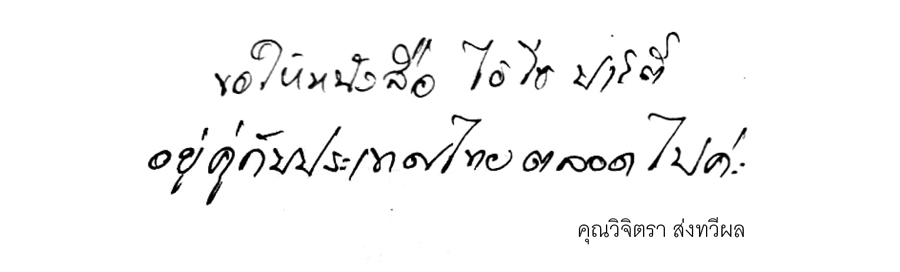 ขอให้หนังสือ ไฮไซ ปาร์ตี้
อยู่คู่กับประเทศไทยตลอดไปค่ะ
คุณวิจิตรา ส่งทวีผล